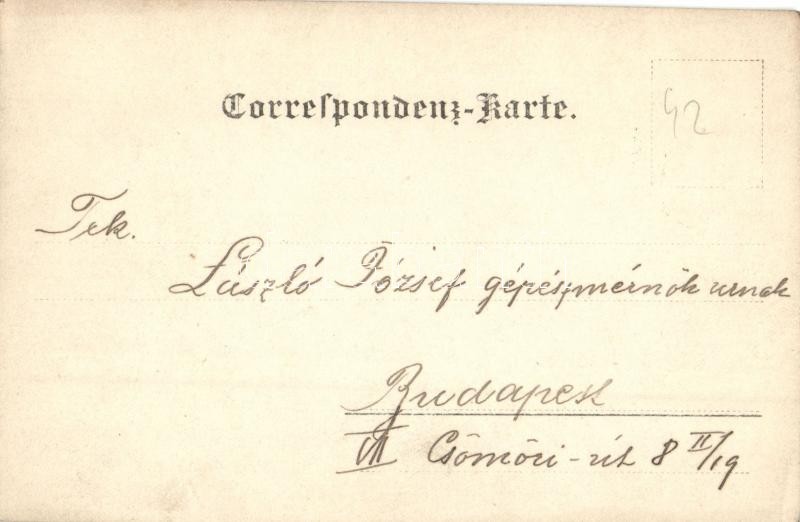 Correspondenz-Karte.
42
Tek.
László József gépészmérnök urnak
Budapest
VII Csömöri-út 8 II/19